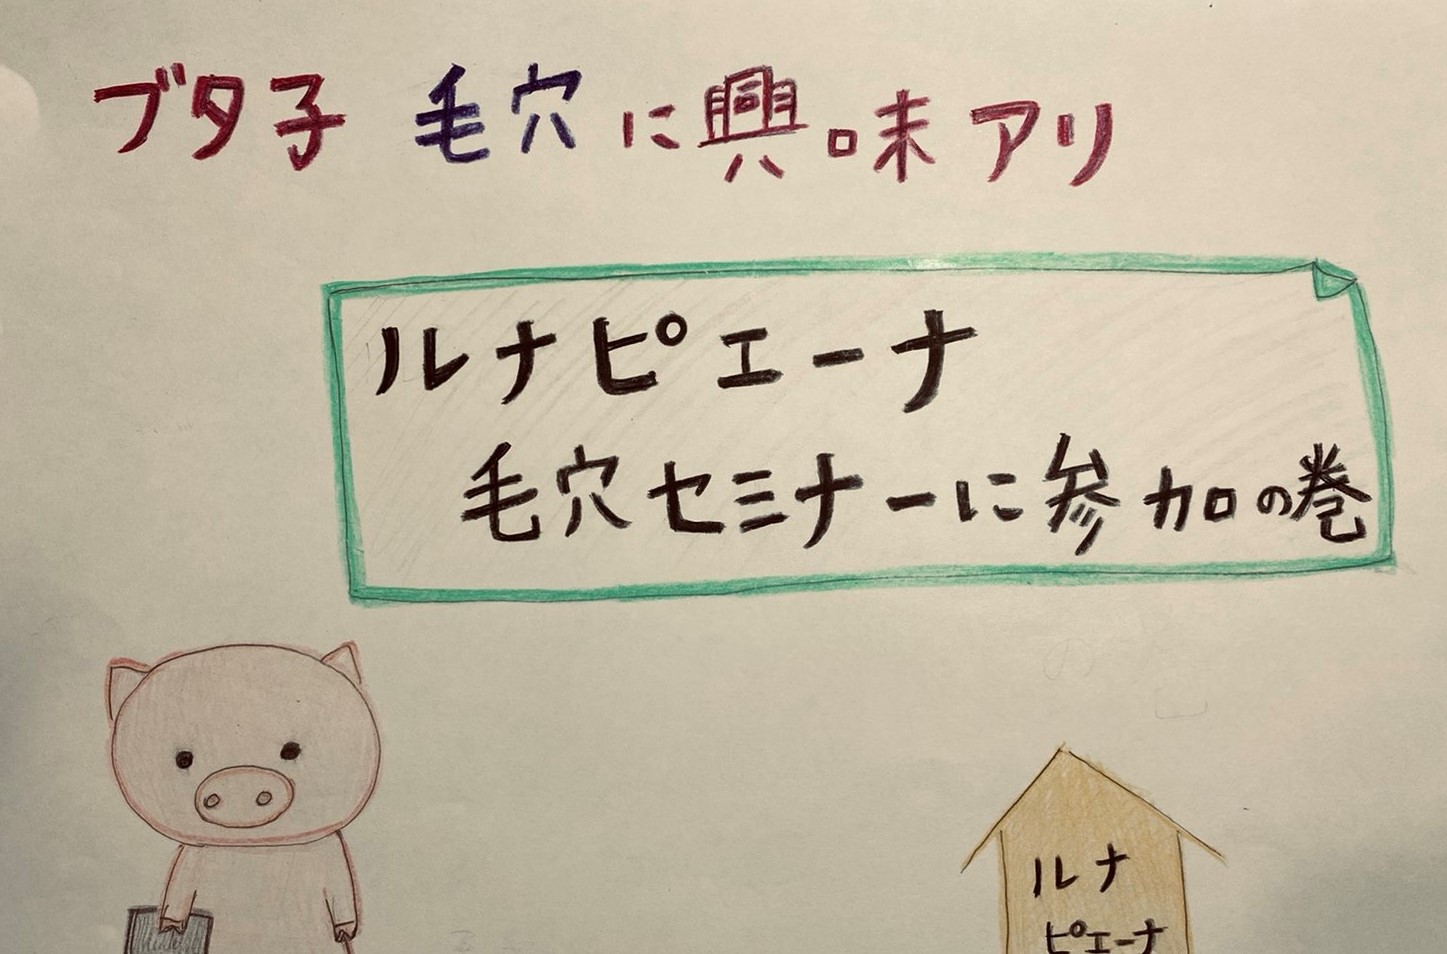 ブタ子 毛穴に興味アリ
ルナピエーナ
毛穴セミナーに参加の巻
ルナ
ピエーナ